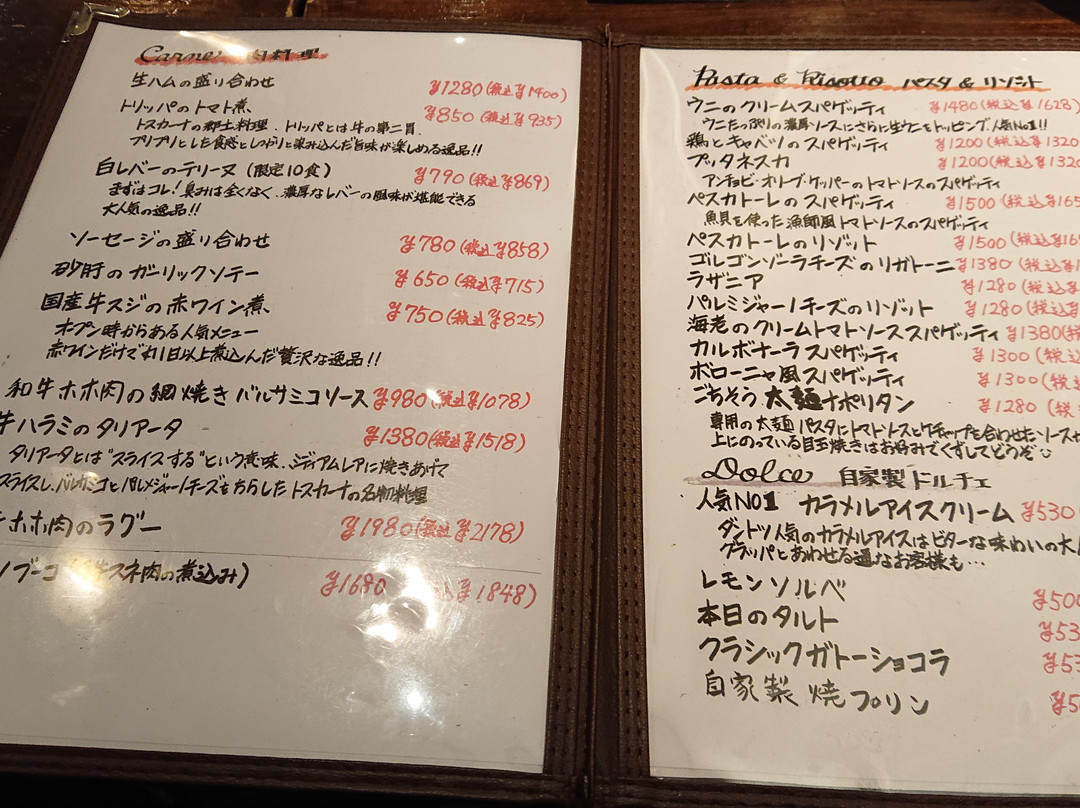 Carne 肉料理
生ハムの盛り合わせ ¥1280(税込¥1400)
トリッパのトマト煮 ¥850(税込¥935)
トスカーナの郷土料理、トリッパとは牛の第二胃、
プリプリとした食感としっかりと染み込んだ旨味が楽しめる逸品!!
白レバーのテリーヌ(限定10食) ¥790(税込¥869)
まずはコレ!臭みは全くなく、濃厚なレバーの風味が堪能できる
大人気の逸品!!
ソーセージの盛り合わせ ¥780(税込¥858)
砂肝のガーリックソテー ¥650(税込¥715)
国産牛スジの赤ワイン煮 ¥750(税込¥825)
オープン時からある人気メニュー
赤ワインだけで丸1日以上煮込んだ贅沢な逸品!!
和牛ホホ肉の網焼きバルサミコソース ¥980(税込¥1078)
牛ハラミのタリアータ ¥1380(税込¥1518)
タリアータとは"スライスする"という意味、ミディアムレアに焼きあげて
スライスし、バルサミコとパルメジャーノチーズをちらしたトスカーナの名物料理
ホホ肉のラグー ¥1980(税込¥2178)
ブーコ(牛スネ肉の煮込み) ¥1680 込¥1848)
Pasta & Risotto パスタ&リゾット
ウニのクリームスパゲッティ ¥1480(税込¥1628)
ウニたっぷりの濃厚ソースにさらに生ウニをトッピング、人気No1!!
鶏とキャベツのスパゲッティ ¥1200(税込¥1320
プッタネスカ ¥1200(税込¥1320
アンチョビ・オリーブ・ケッパーのトマトソースのスパゲッティ
ペスカトーレのスパゲッティ ¥1500(税込¥165
魚貝を使った漁師風トマトソースのスパゲッティ
ペスカトーレのリゾット ¥1500(税込¥16
ゴルゴンゾーラチーズのリガトーニ ¥1380(税込¥1
ラザニア ¥1280(税込¥
パルミジャーノチーズのリゾット ¥1280(税込¥
海老のクリームトマトソーススパゲッティ ¥1380(税
カルボナーラスパゲッティ ¥1300(税込
ボローニャ風スパゲッティ ¥1300(税
ごちそう太麺ナポリタン ¥1280(税
専用の太麺パスタにトマトソースとケチャップを合わせたソース
上にのっている目玉焼きはお好みでくずしてどうぞ
Dolce 自家製ドルチェ
人気NO1 カラメルアイスクリーム ¥530
ダントツ人気のカラメルアイスはビターな味わいの大人
グラッパとあわせる通なお客様も…
レモンソルベ ¥500
本日のタルト ¥53
クラシックガトーショコラ ¥53
自家製焼プリン ¥5